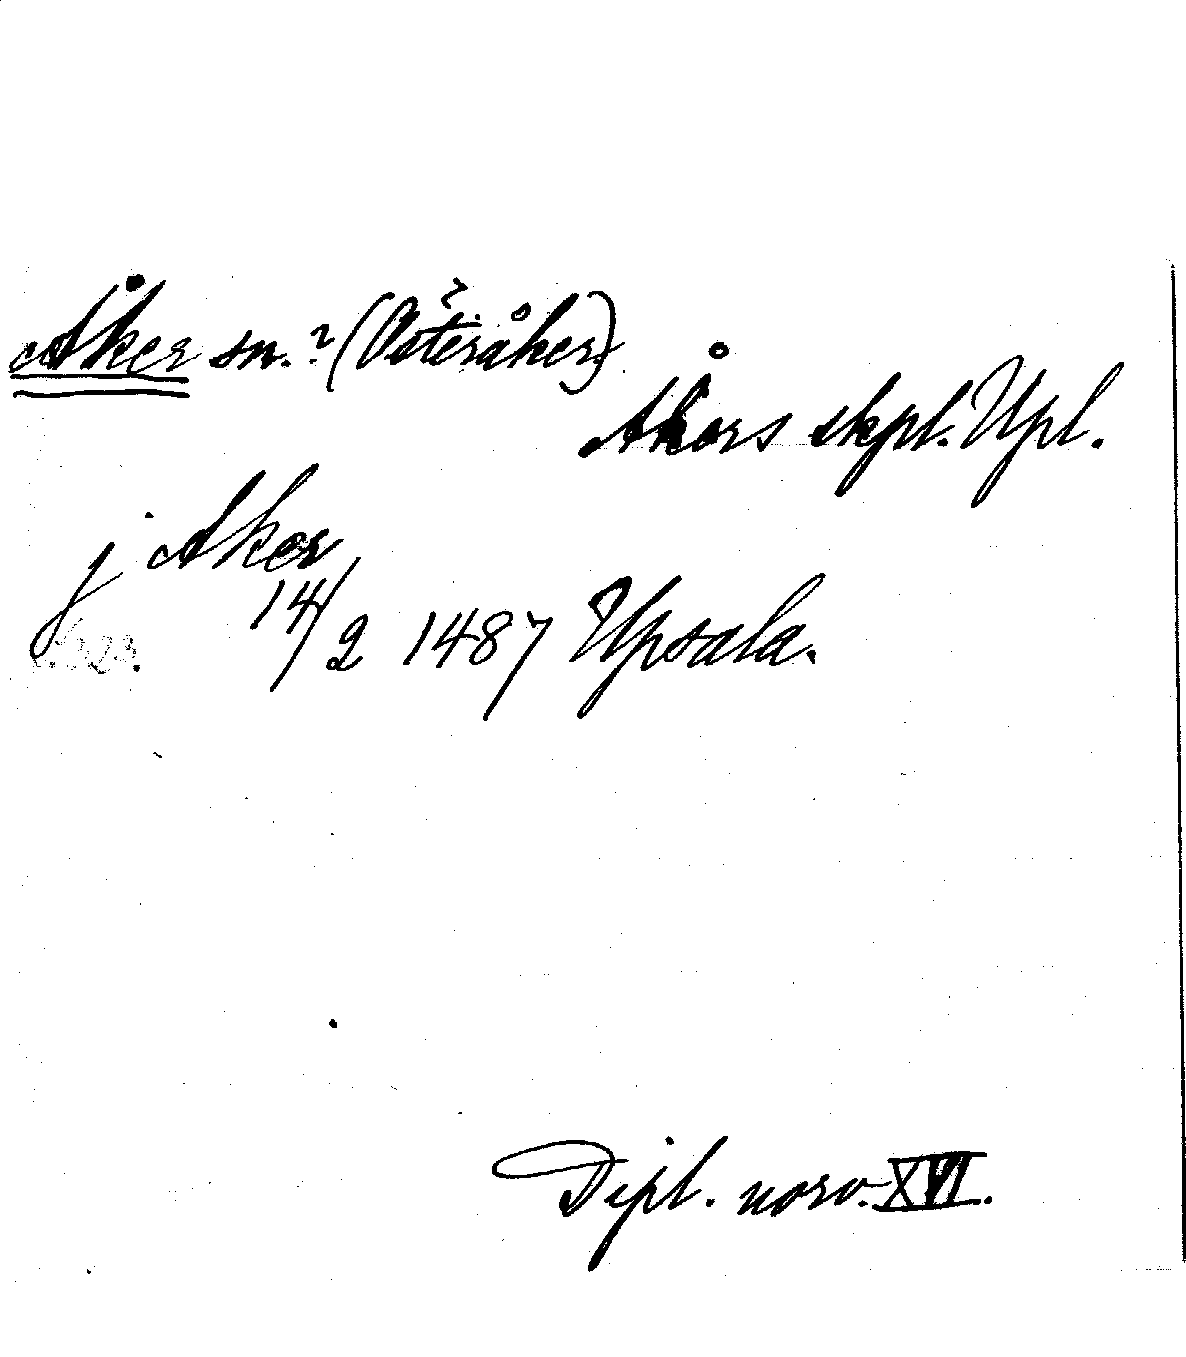 Åker sn. ? (Österåker)
Åkers skpl. Upl.
j Aker
14/2 1487 Upsala.
Dipl. norv. XVI.